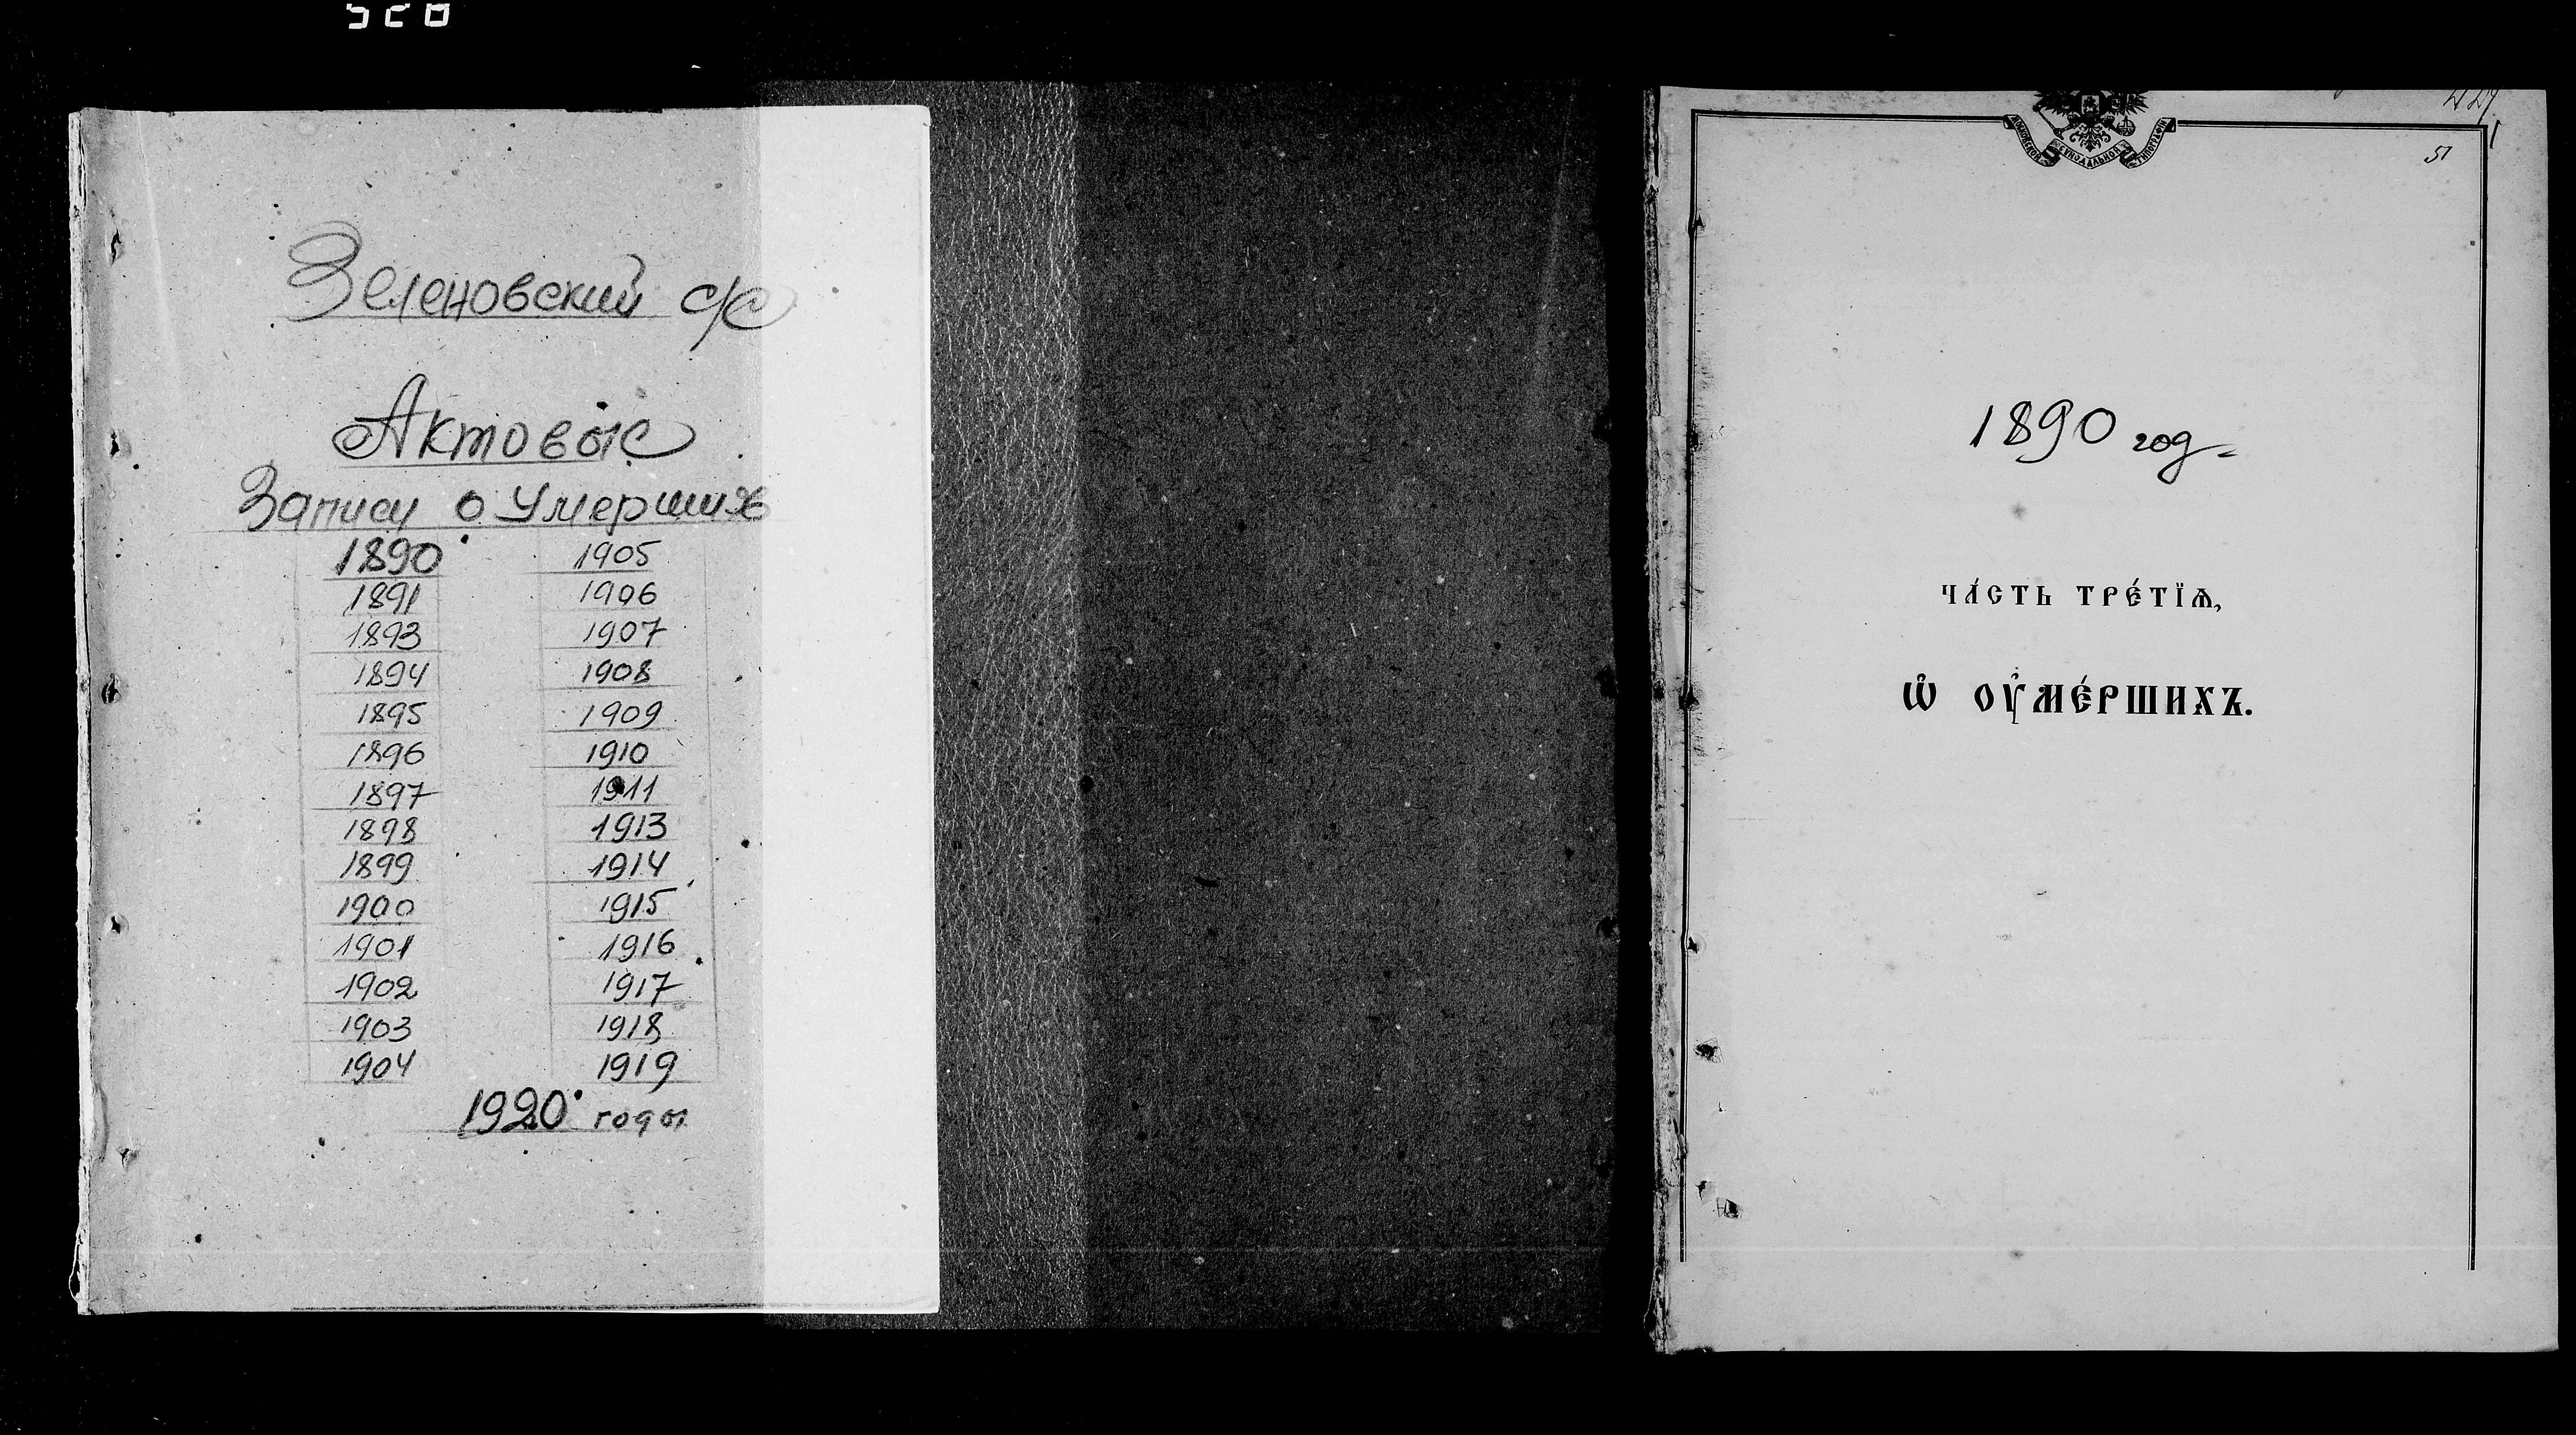 Зеленовский с/с
Актовые
Записи о Умерших
1890 1905
1891 1906
1893 1907
1894 1908
1895 1909
1896 1910
1897 1911
1898 1913
1899 1914
1900 1915
1901 1916
1902 1917
1903 1918
1904 1919
1920 годы
МОСКОВСКОЙ СѴНОДАЛЬНОЙ ТИПОГРАФІИ
51
1890 год
ЧА́СТЬ ТРЕ́ТЇѦ,
Ѡ҆ ОУ҆МЕ́РШИХЪ.